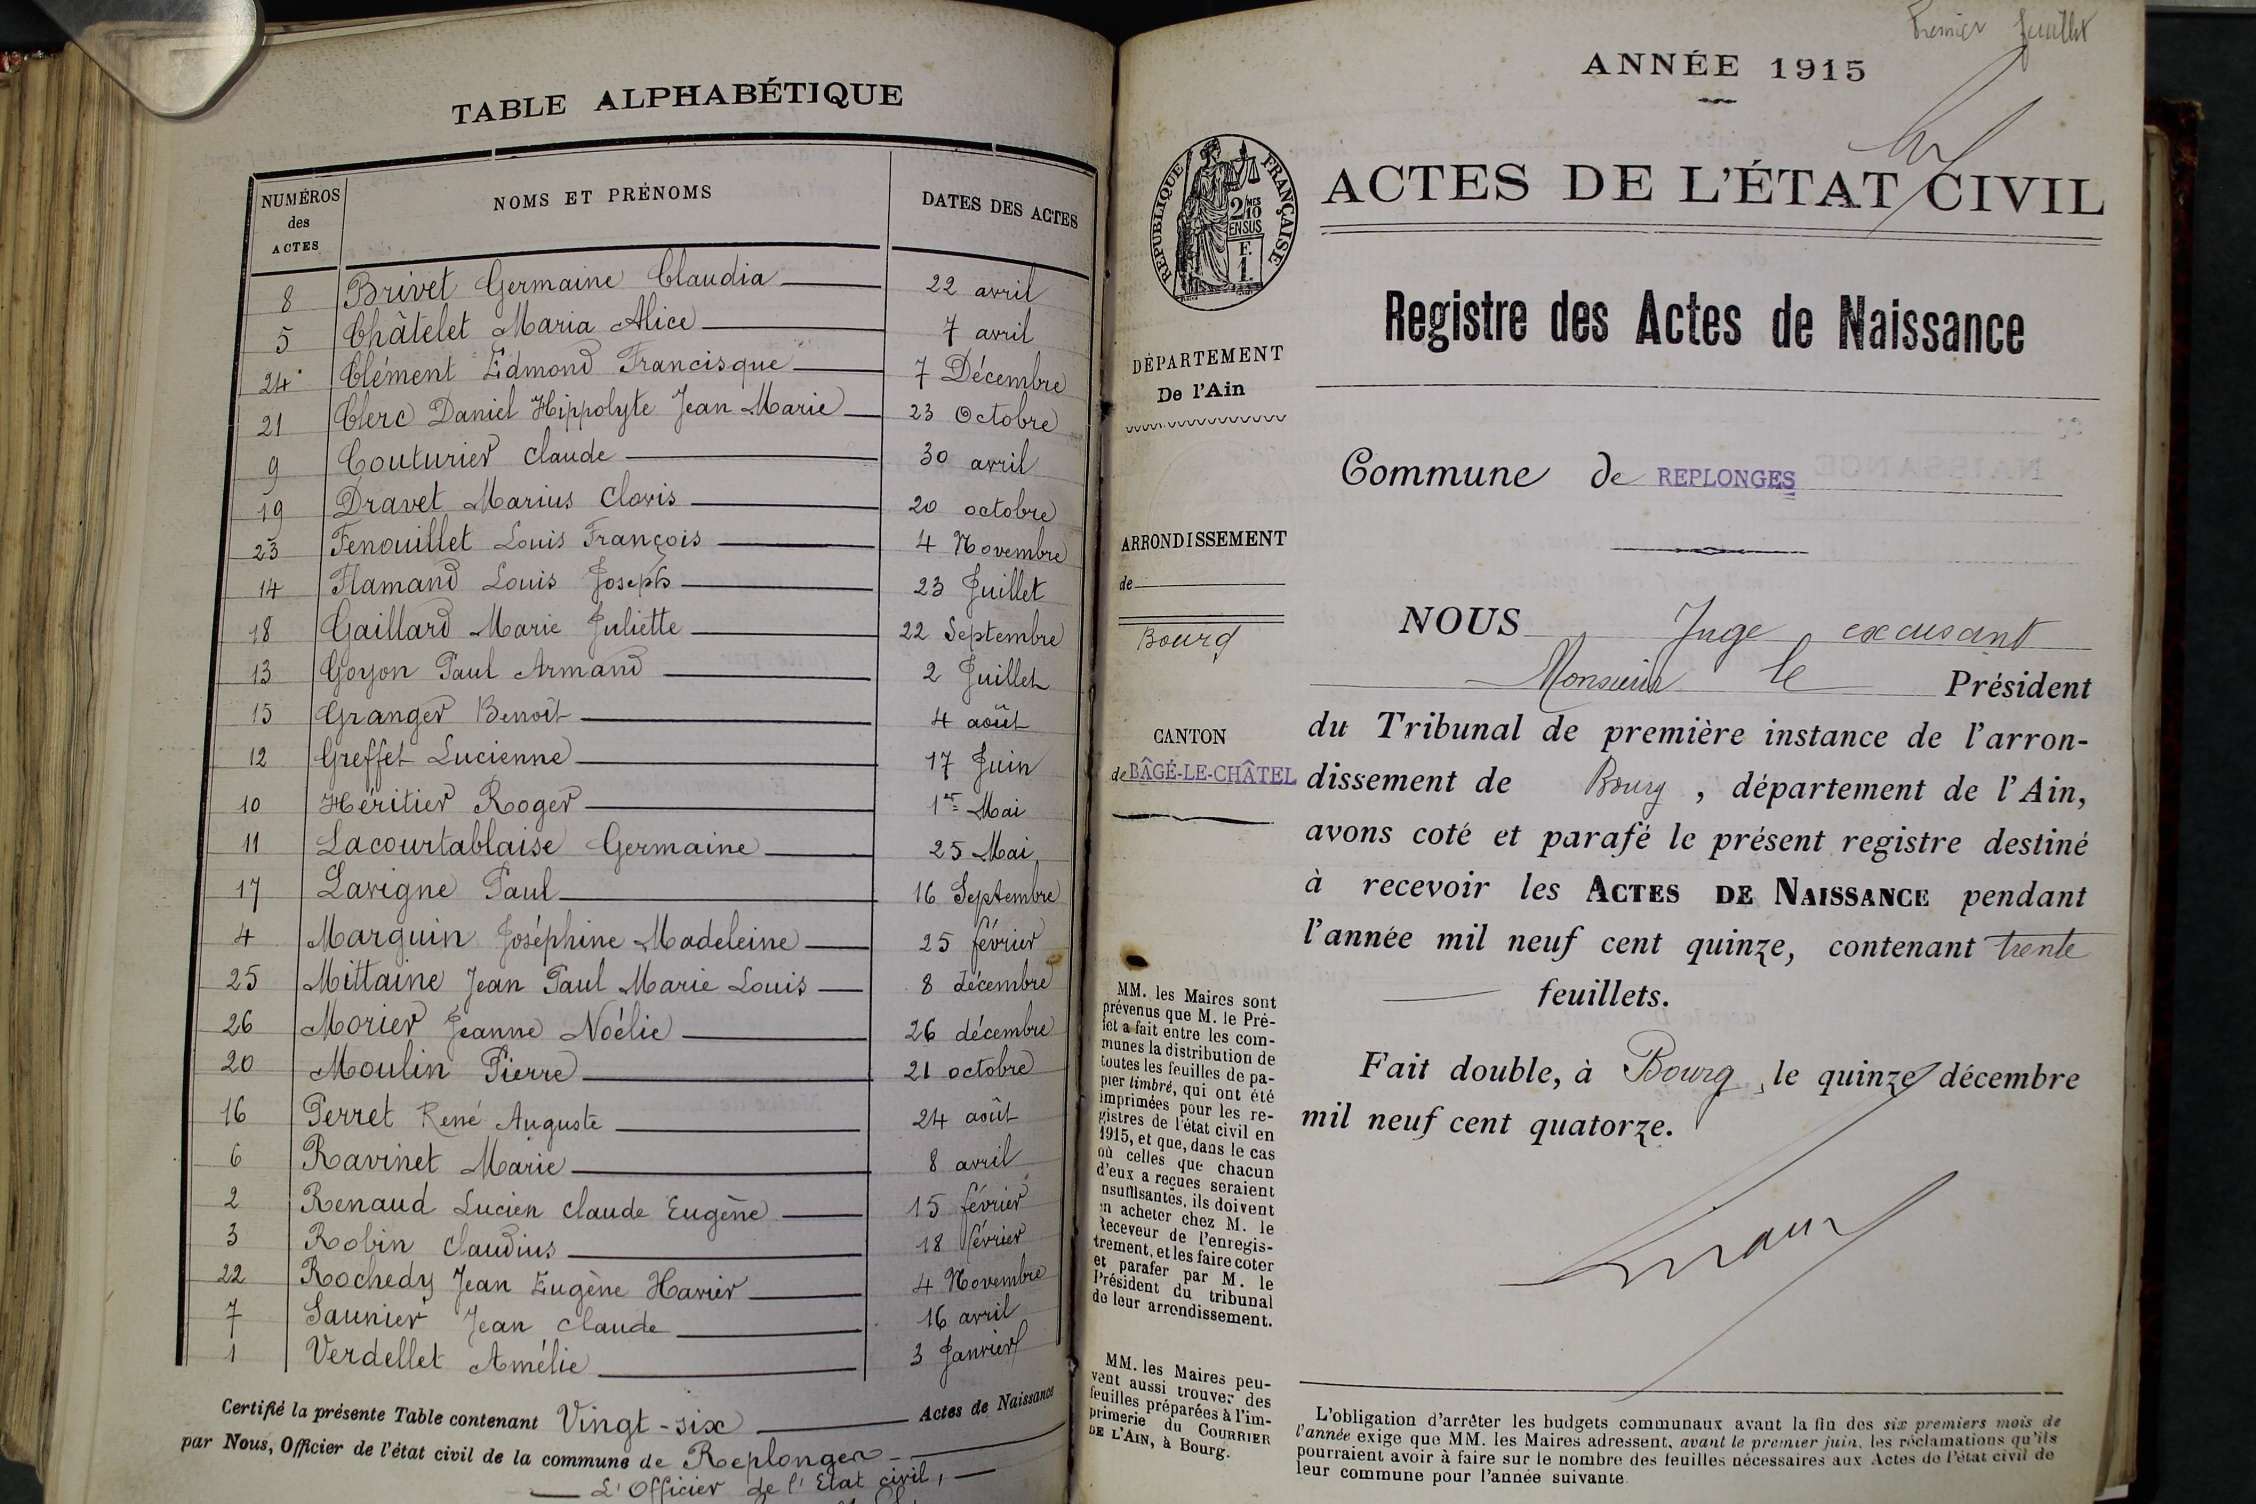 TABLE ALPHABÉTIQUE
NUMÉROS des ACTES NOMS ET PRÉNOMS DATES DES ACTES
8 Brivet Germaine Claudia 22 avril
5 Châtelet Maria Alice 7 avril
24 Clément Edmond Francisque 7 Décembre
21 Clerc Daniel Hippolyte Jean Marie 23 Octobre
9 Couturier Claude 30 avril
19 Dravet Marius Clovis 20 octobre
23 Fenouillet Louis François 4 Novembre
14 Flamand Louis Joseph 23 Juillet
18 Gaillard Marie Juliette 22 Septembre
13 Goyon Paul Armand 2 Juillet
15 Granger Benoît 4 août
12 Greffet Lucienne 17 Juin
10 Héritier Roger 1er Mai
11 Lacourtablaise Germaine 25 Mai
17 Lavigne Paul 16 Septembre
4 Marguin Joséphine Madeleine 25 février
25 Mittaine Jean Paul Marie Louis 8 décembre
26 Morier Jeanne Noélie 26 décembre
20 Moulin Pierre 21 octobre
16 Perret René Auguste 24 août
6 Ravinet Marie 8 avril
2 Renaud Lucien Claude Eugène 15 février
3 Robin Claudius 18 février
22 Rochedy Jean Eugène Xavier 4 Novembre
7 Saunier Jean Claude 16 avril
1 Verdellet Amélie 3 Janvier
Certifié la présente Table contenant Vingt-six Actes de Naissance
par Nous, Officier de l'état civil de la commune de Replonges
L'Officier de l'Etat civil,
Premier feuillet
ANNÉE 1915
ACTES DE L'ÉTAT CIVIL
RÉPUBLIQUE FRANÇAISE
2/10MES
EN SUS
F.
1.
Registre des Actes de Naissance
DÉPARTEMENT
De l'Ain
Commune de REPLONGES
ARRONDISSEMENT
de
Bourg
CANTON
de BÂGÉ-LE-CHÂTEL
NOUS Juge excusant
Monsieur le Président
du Tribunal de première instance de l'arron-
dissement de Bourg, département de l'Ain,
avons coté et parafé le présent registre destiné
à recevoir les ACTES DE NAISSANCE pendant
l'année mil neuf cent quinze, contenant trente
feuillets.
Fait double, à Bourg, le quinze décembre
mil neuf cent quatorze.
MM. les Maires sont
prévenus que M. le Pré-
fet a fait entre les com-
munes la distribution de
toutes les feuilles de pa-
pier timbré, qui ont été
imprimées pour les re-
gistres de l'état civil en
1915, et que, dans le cas
où celles que chacun
d'eux a reçues seraient
insuffisantes, ils doivent
en acheter chez M. le
Receveur de l'enregis-
trement, et les faire coter
et parafer par M. le
Président du tribunal
de leur arrondissement.
MM. les Maires peu-
vent aussi trouver des
feuilles préparées à l'im-
primerie du COURRIER
DE L'AIN, à Bourg.
L'obligation d'arrêter les budgets communaux avant la fin des six premiers mois de
l'année exige que MM. les Maires adressent, avant le premier juin, les réclamations qu'ils
pourraient avoir à faire sur le nombre des feuilles nécessaires aux Actes de l'état civil de
leur commune pour l'année suivante.